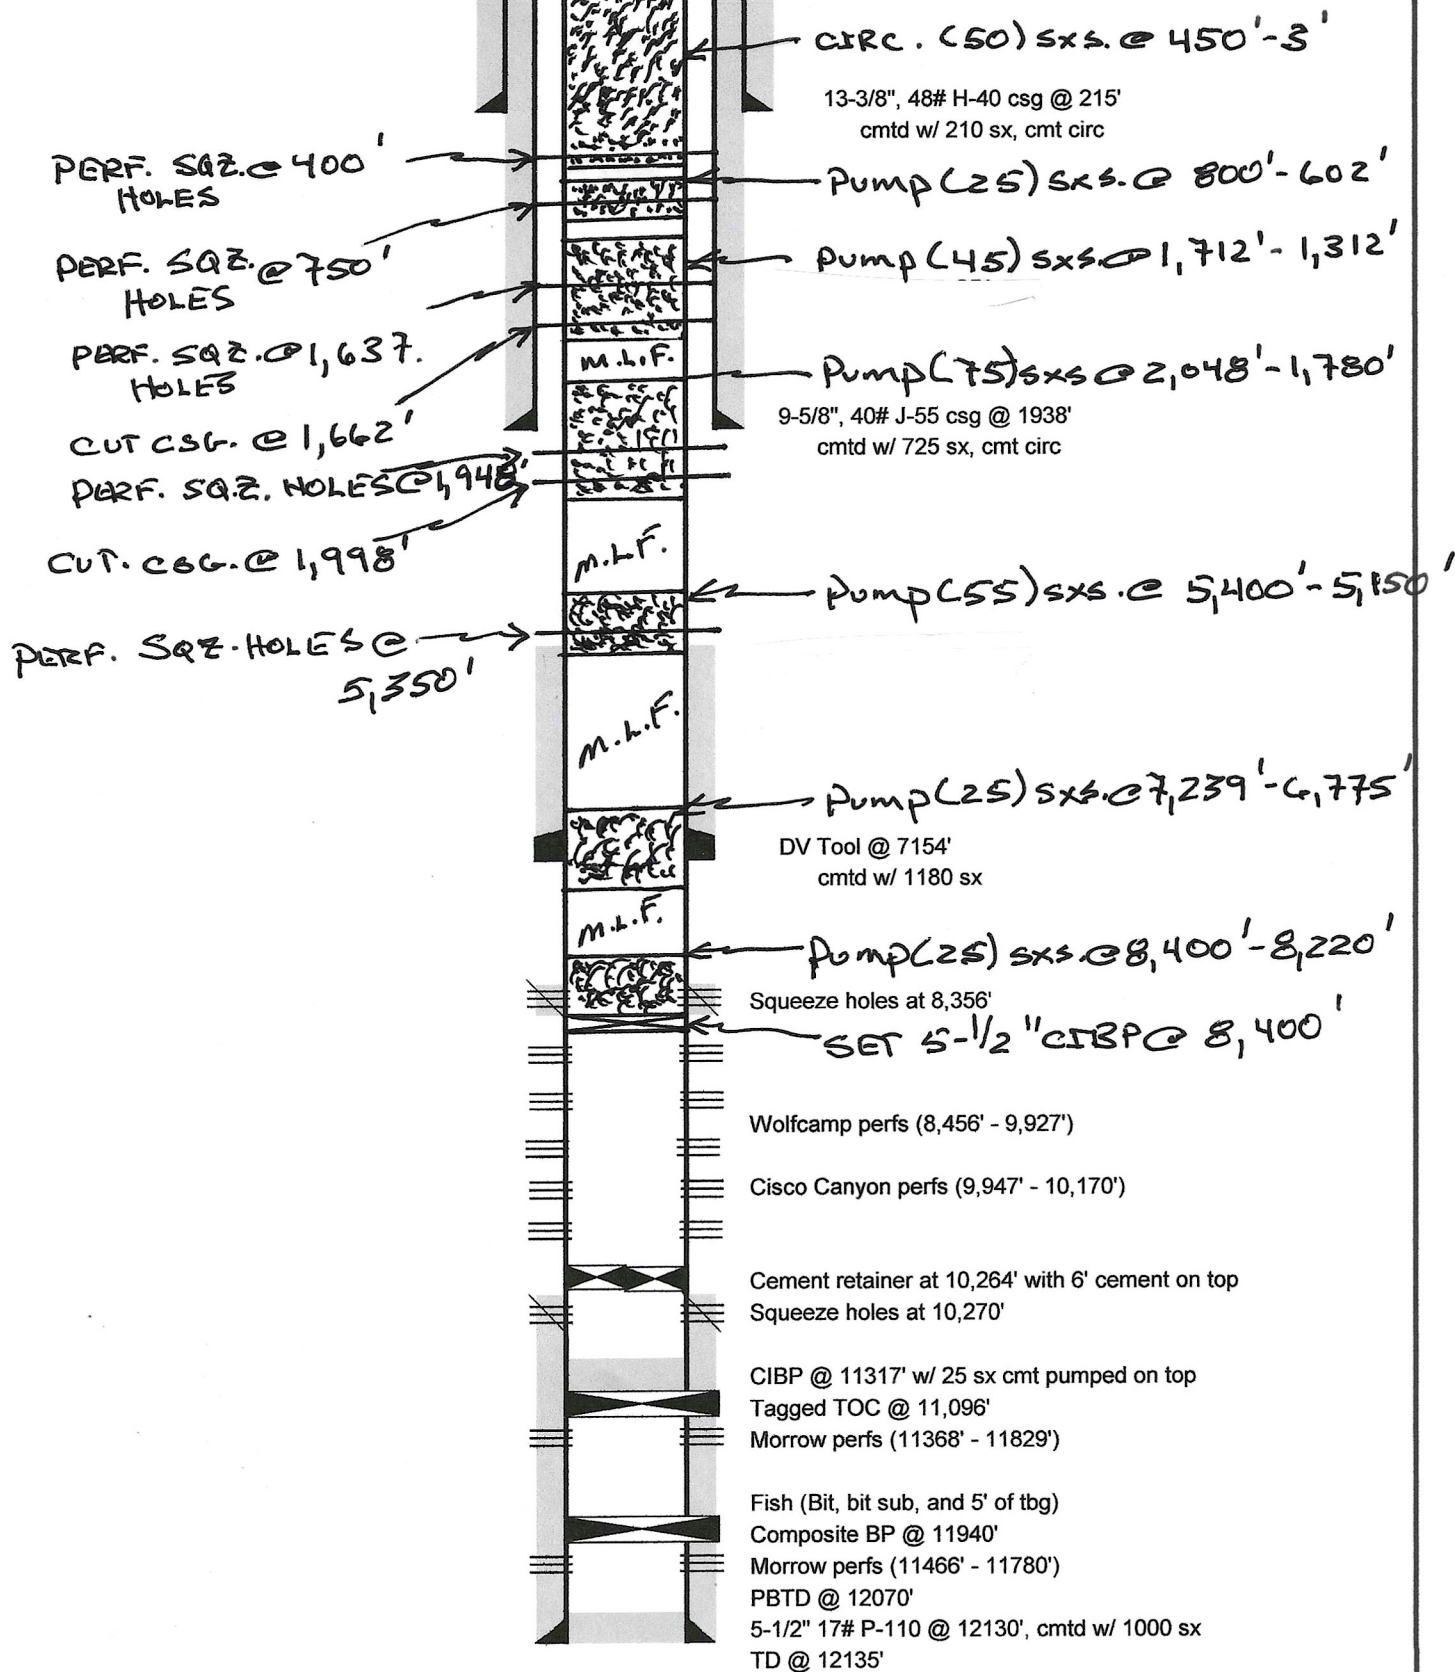 CIRC. (50) SXS. @ 450'-3'
13-3/8", 48# H-40 csg @ 215'
cmtd w/ 210 sx, cmt circ
PERF. SQZ. @ 400'
HOLES
Pump (25) SXS. @ 800'-602'
PERF. SQZ. @ 750'
HOLES
Pump (45) SXS. @ 1,712'-1,312'
PERF. SQZ. @ 1,637.
HOLES
M.L.F.
Pump (75) SXS @ 2,048'-1,780'
9-5/8", 40# J-55 csg @ 1938'
cmtd w/ 725 sx, cmt circ
CUT CSG. @ 1,662'
PERF. SQ.Z. HOLES @ 1,948'
CUT. CSG. @ 1,998'
M.L.F.
Pump (55) SXS. @ 5,400'-5,150'
PERF. SQZ. HOLES @
5,350'
M.L.F.
Pump (25) SXS. @ 7,239'-6,775'
DV Tool @ 7154'
cmtd w/ 1180 sx
M.L.F.
Pump (25) SXS. @ 8,400'-8,220'
Squeeze holes at 8,356'
SET 5-1/2" CIBP @ 8,400'
Wolfcamp perfs (8,456' - 9,927')
Cisco Canyon perfs (9,947' - 10,170')
Cement retainer at 10,264' with 6' cement on top
Squeeze holes at 10,270'
CIBP @ 11317' w/ 25 sx cmt pumped on top
Tagged TOC @ 11,096'
Morrow perfs (11368' - 11829')
Fish (Bit, bit sub, and 5' of tbg)
Composite BP @ 11940'
Morrow perfs (11466' - 11780')
PBTD @ 12070'
5-1/2" 17# P-110 @ 12130', cmtd w/ 1000 sx
TD @ 12135'